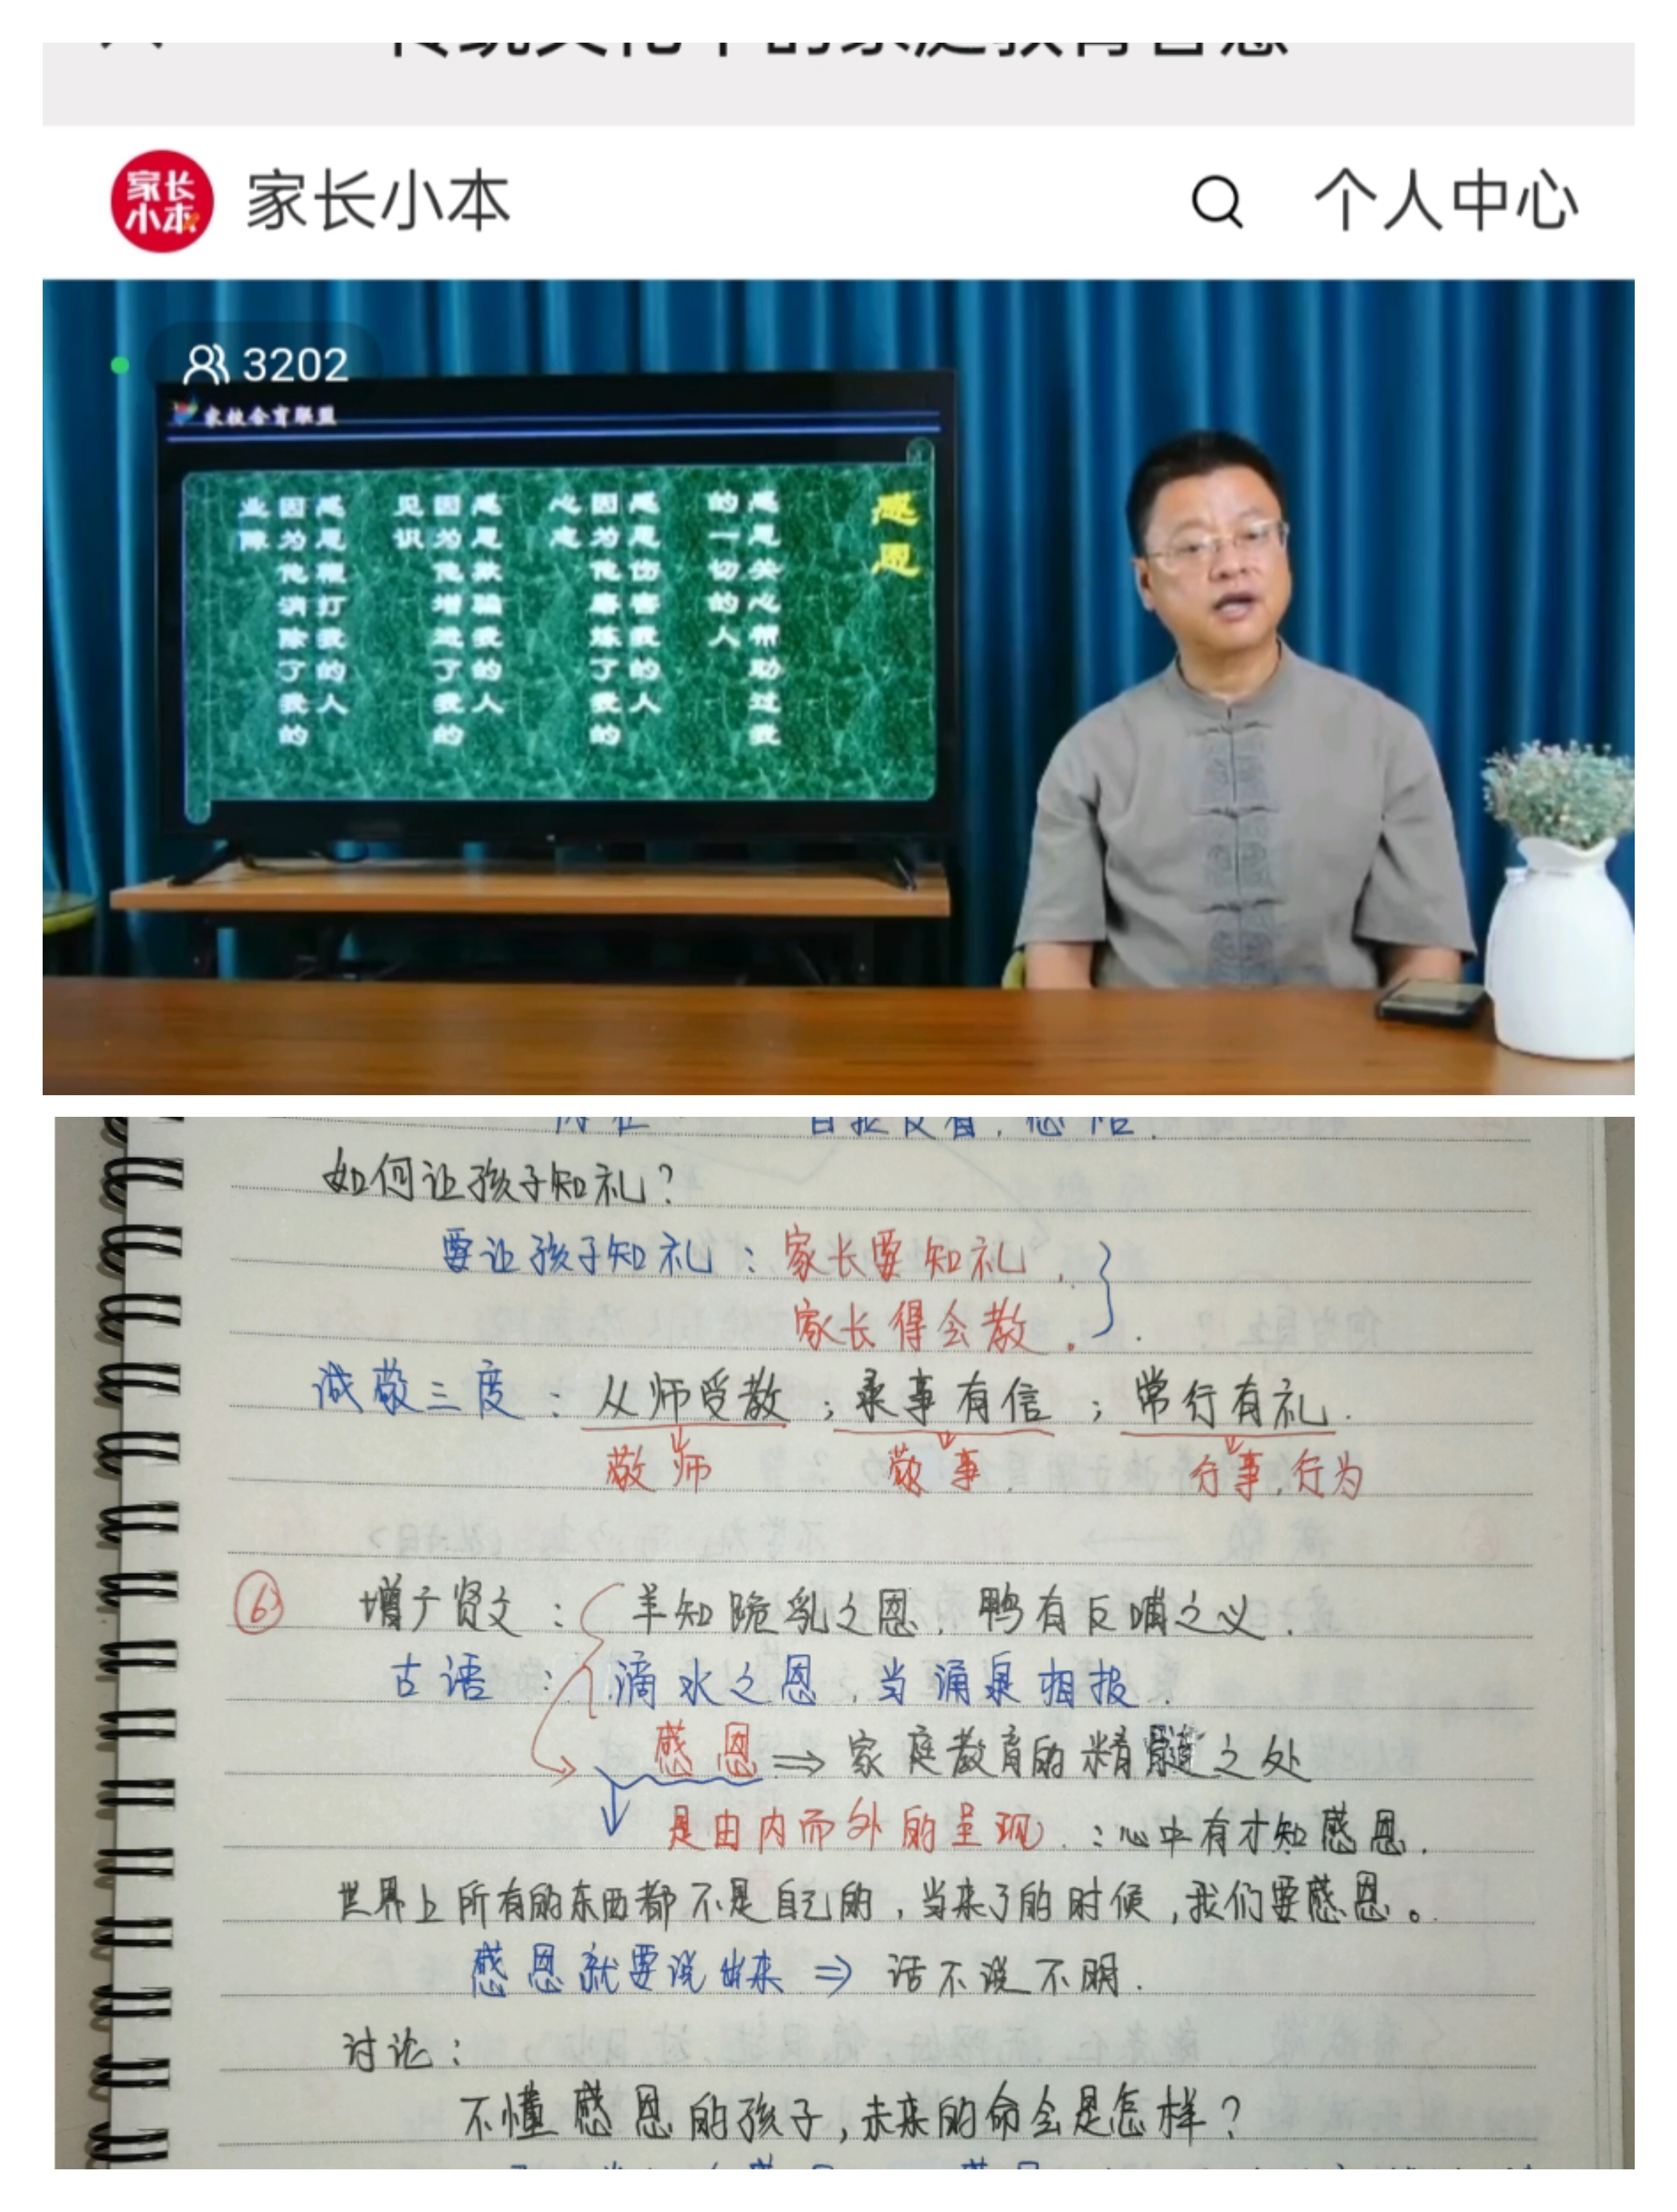 传统文化中的家庭教育智慧
家长
小本
家长小本
个人中心
3202
家校合育联盟
感恩
感恩关心帮助过我
的一切的人
感恩伤害我的人
因为他磨炼了我的
心志
感恩欺骗我的人
因为他增进了我的
见识
感恩鞭打我的人
因为他消除了我的
业障
如何让孩子知礼？
要让孩子知礼：家长要知礼，
家长得会教．
诚敬三度：从师受教；录事有信；常行有礼．
敬师 敬事 行事，行为
6 增于贤文：羊知跪乳之恩，鸭有反哺之义．
古语：滴水之恩，当涌泉相报．
感恩⇒家庭教育的精髓之处
是由内而外的呈现．：心中有才知感恩．
世界上所有的东西都不是自己的，当来了的时候，我们要感恩。
感恩就要说出来⇒话不说不明．
讨论：
不懂感恩的孩子，未来的命会是怎样？